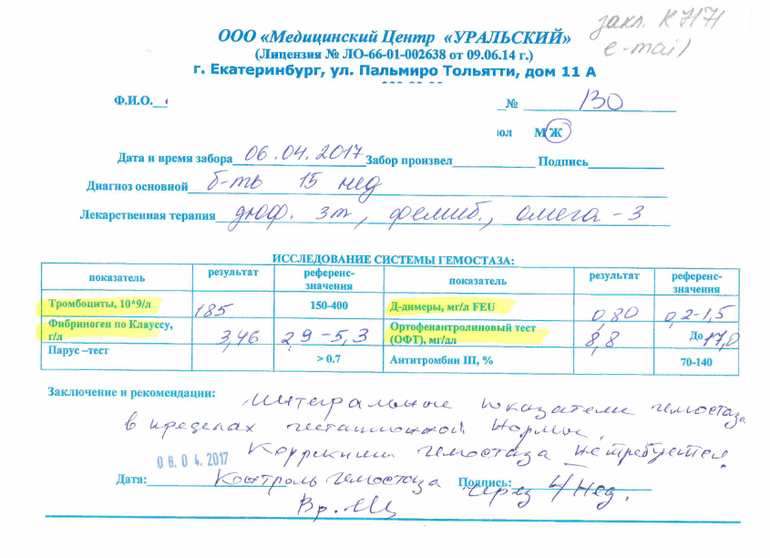 закл. К 7171
e-mail
ООО «Медицинский Центр «УРАЛЬСКИЙ»
(Лицензия № ЛО-66-01-002638 от 09.06.14 г.)
г. Екатеринбург, ул. Пальмиро Тольятти, дом 11 А
Ф.И.О. № 130
пол М Ж
Дата и время забора 06.04.2017 Забор произвел Подпись
Диагноз основной б-ть 15 нед
Лекарственная терапия дюф. 3т, фемиб., омега-3
ИССЛЕДОВАНИЕ СИСТЕМЫ ГЕМОСТАЗА:
показатель результат референс-значения показатель результат референс-значения
Тромбоциты, 10*9/л 185 150-400 Д-димеры, мг/л FEU 0,80 0,2-1,5
Фибриноген по Клауссу, г/л 3,46 2,9-5,3 Ортофенантролиновый тест (ОФТ), мг/дл 8,8 До 17,0
Парус –тест > 0.7 Антитромбин III, % 70-140
Заключение и рекомендации: Интегральные показатели гемостаза
в пределах гестационной нормы.
Коррекции гемостаза не требуется.
06.04.2017
Дата: Контроль гемостаза Подпись: через 4 нед.
Вр.